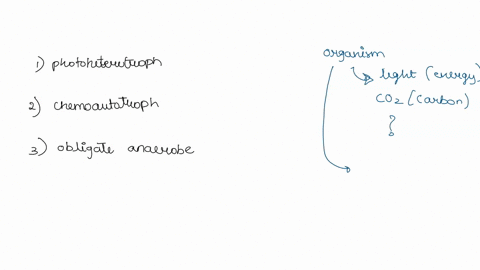 1) photoheterotroph
2) chemoautotroph
3) obligate anaerobe
organism
light (energy)
CO2 (carbon)
?